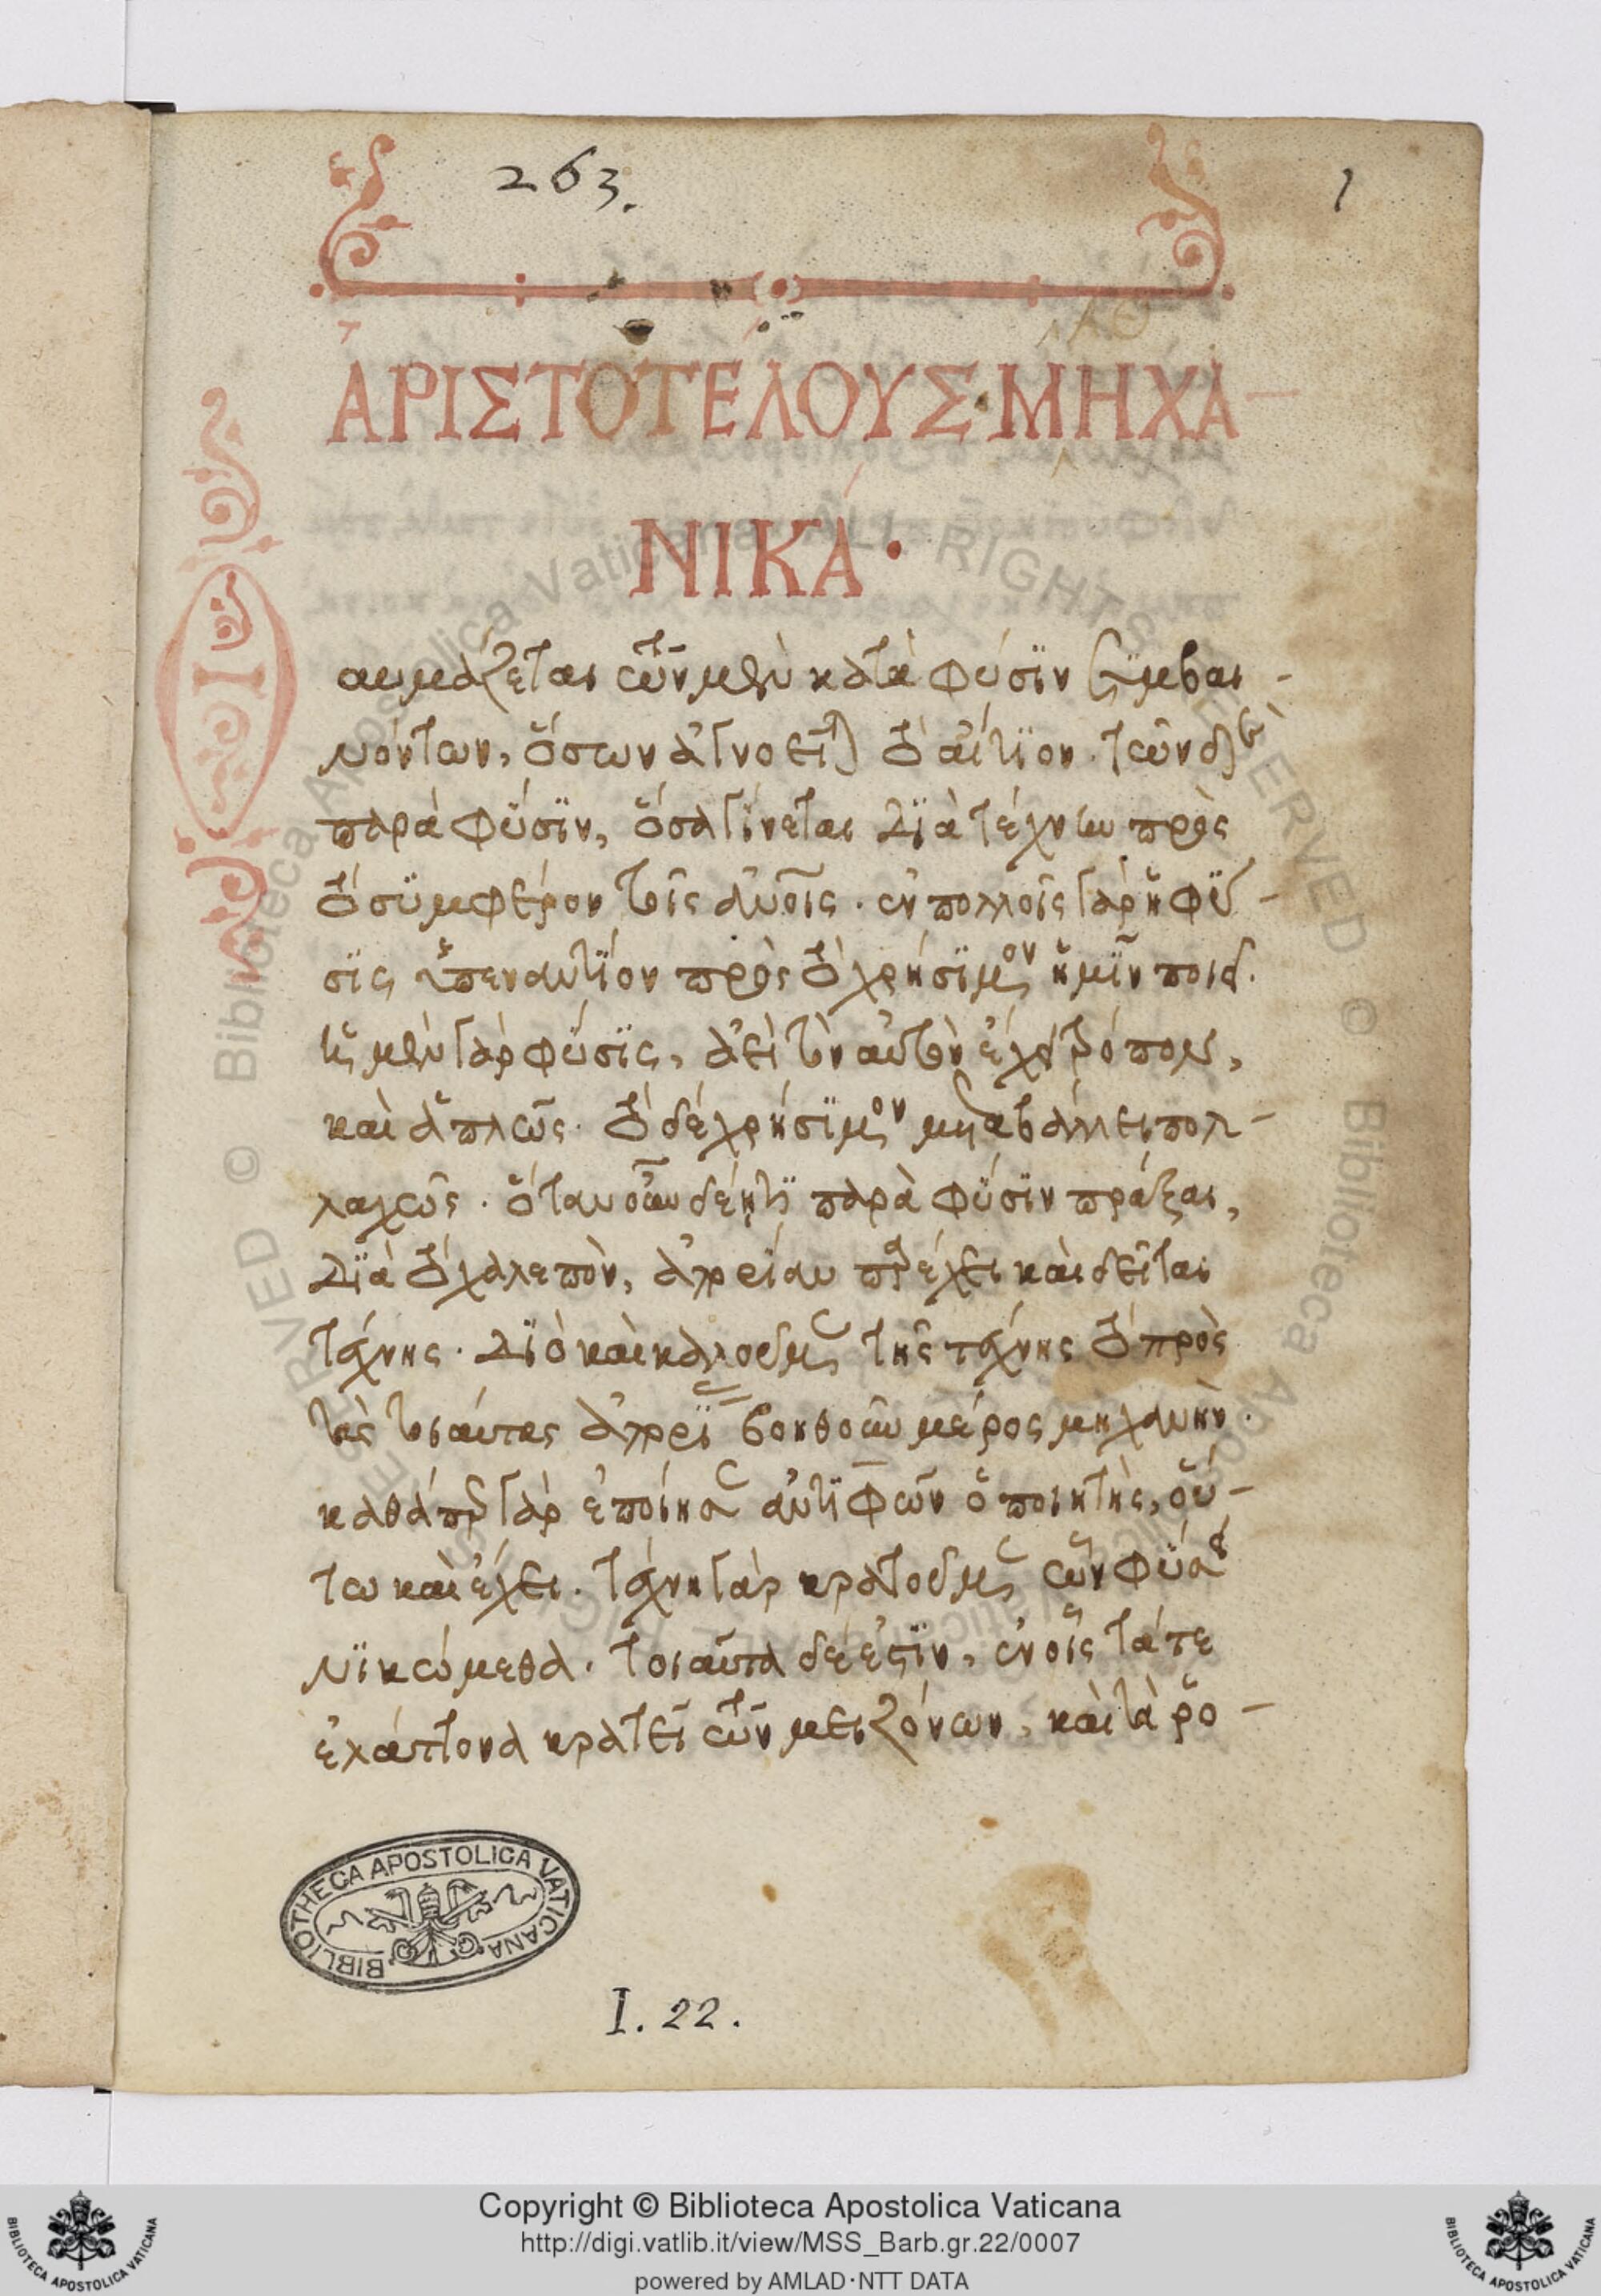 263.
1
ἈΡΙΣΤΟΤΈΛΟΥΣ ΜΗΧΑ-
ΝΙΚΆ·
Θαυμάζεται τῶν μὲν κατὰ φύσϊν συμβαι-
νόντων, ὅσων ἀγνοεῖται τὸ αἴτϊον· τῶν δὲ
παρὰ φύσϊν, ὅσα γίνεται δϊὰ τέχνην πρὸς
τὸ συμφέρον τοῖς ἀνοῖς· ἐν πολλοῖς γὰρ ἡ φύ-
σϊς ὑπεναντίον πρὸς τὸ χρήσϊμον ἡμῖν ποιεῖ.
ἡ μὲν γὰρ φύσϊς, ἀεὶ τὸν αὐτὸν ἔχει τρόπον,
καὶ ἁπλῶς· τὸ δὲ χρήσϊμον μεταβάλλει πολ-
λαχῶς· ὅταν οὖν δέη τϊ παρὰ φύσϊν πράξαι,
δϊὰ τὸ χαλεπὸν, ἀπορίαν παρέχει καὶ δεῖται
τέχνης· δϊὸ καὶ καλοῦμεν τῆς τέχνης τὸ πρὸς
τὰς τοιαύτας ἀπορίας βοηθοῦν μέρος μηχανήν·
καθάπερ γὰρ ἐποίησεν ἀντϊφῶν ὁ ποιητὴς, οὕ-
τω καὶ ἔχει· τέχνη γὰρ κρατοῦμεν ὧν φύσει
νϊκώμεθα· τοιαῦτα δέ ἐστϊν, ἐν οἷς τά τε
ἐλάττονα κρατεῖ τῶν μειζόνων, καὶ τὰ ῥο-
BIBLIOTHECA APOSTOLICA VATICANA
I. 22.
Copyright © Biblioteca Apostolica Vaticana
http://digi.vatlib.it/view/MSS_Barb.gr.22/0007
powered by AMLAD·NTT DATA